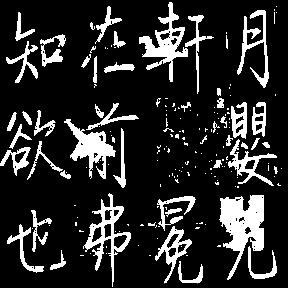 月嬰兒
軒冕
在前弗
知欲也